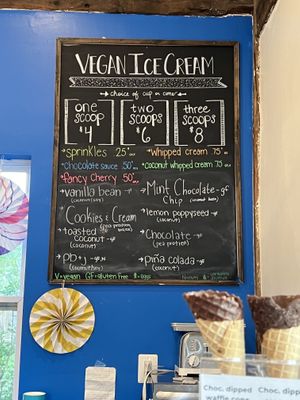 VEGAN ICE CREAM
choice of cup or cone
one scoop $4
two scoops $6
three scoops $8
sprinkles 25¢
whipped cream 75¢
chocolate sauce 50¢
coconut whipped cream 75¢
fancy cherry 50¢
vanilla bean
Mint Chocolate Chip -gf
Cookies & Cream
(pea protein)
lemon poppyseed
(coconut)
toasted coconut -gf
(coconut)
Chocolate -gf
(pea protein)
PB + J -gf
piña colada -gf
(coconut)
V=vegan Gf=gluten free
Choc. dipped waffle cone
Choc. dipped